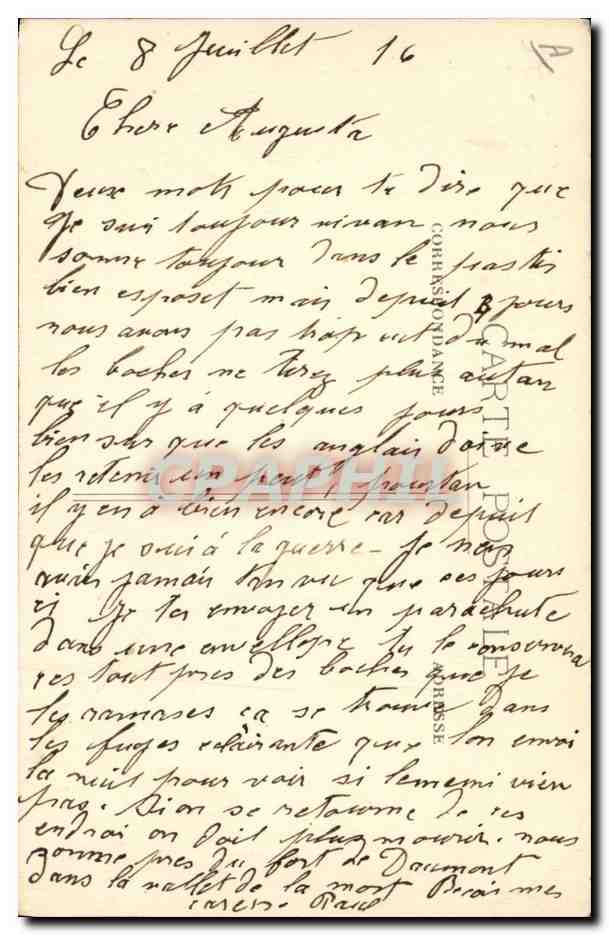 Le 8 Juillet 16
A
Chere Augusta
Deux mots pour te dire que
Je suis toujour vivan nous
somme toujour dans le
bien esposet mais depuis 3 jours
nous avons pas trop eut du mal
les boches ne tirez plus autan
que il y à quelques jours
bien sur que les anglais doive
les retenir un peut pourtan
il y en a bien encore car depuit
que je sui à la guerre. Je nen
avais jamais tan vu que ses jours
ci Je tes envoyer un parachute
dans une envellope tu le conservera
ces tout pres des boches que je
les ramases ca se trouve dans
les fuzes eclairante que lon envoi
la nuit pour voir si lenemi vien
pas. Si on se retourne de ces
endroi on doit plus mourir. nous
somme pres du fort de Daumont
dans la vallet de la mort Recois mes
caresse Paul
CORRESPONDANCE
CARTE POSTALE
ADRESSE
CPAPHIL